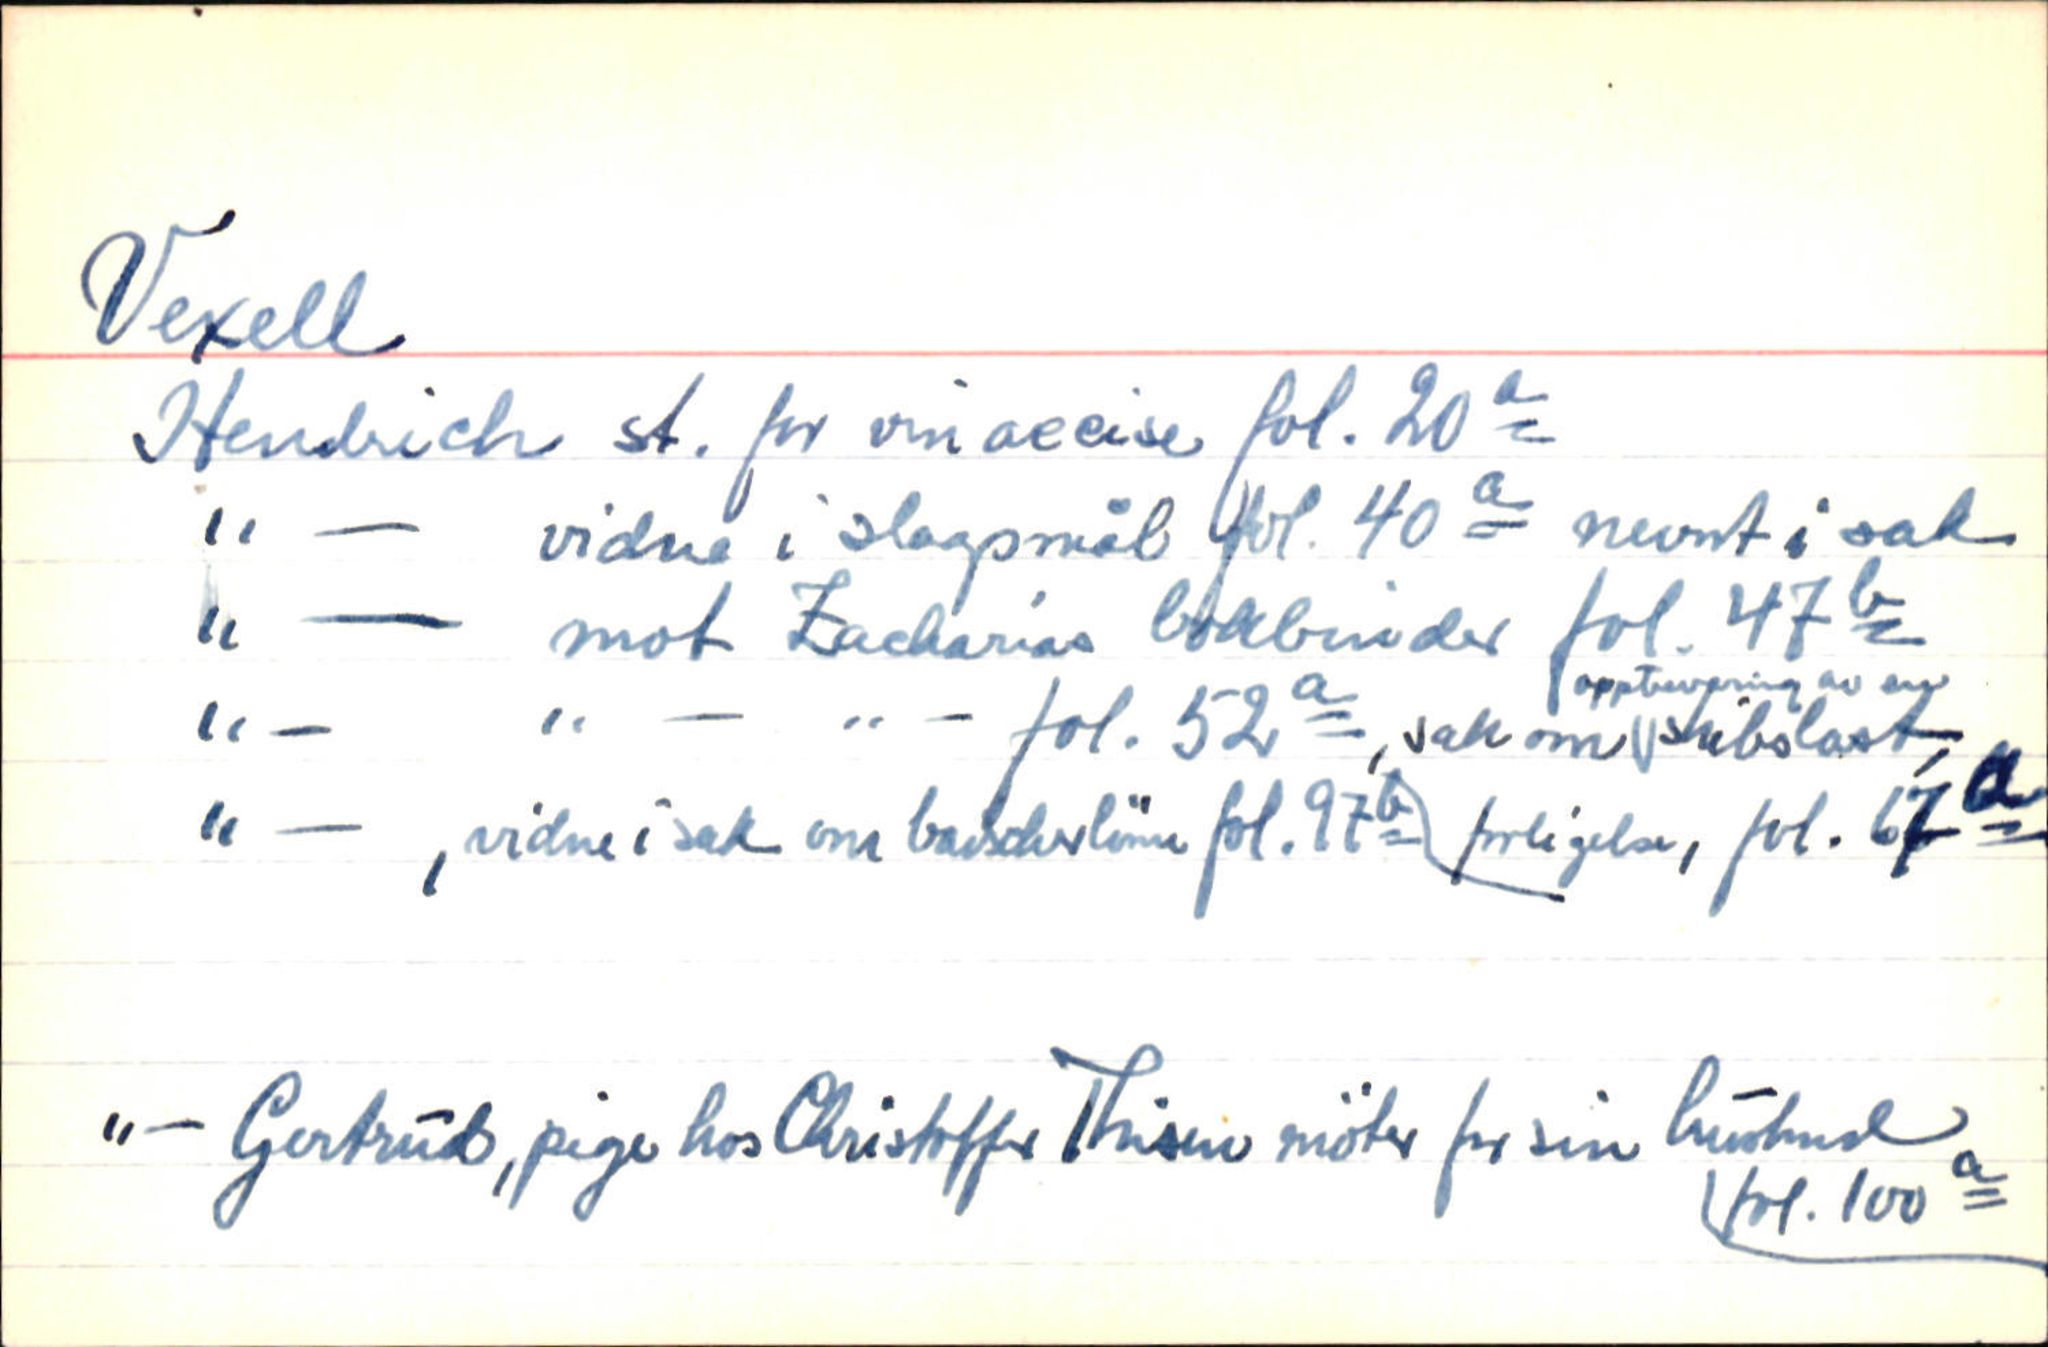 Vexell
Hendrich st. for vinaccise fol. 20 a
" — vidne i slagsmål fol. 40 a nevnt i sak
" — mot Zacharias bokbinder fol. 47 b
" — " — " — fol. 52 a, sak om av en skibslast,
" — , vidne i sak om fol. 97 b forligelse, fol. 67 a
" — Gertrud, pige hos Christoffer Thisen möter for sin husbond
fol. 100 a